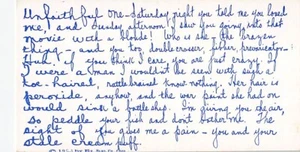 Unfaithful one - Saturday night you told me you loved
me, and Sunday afternoon I saw you going into that
movie with a blonde! Who is she - the brazen
thing - and you too, double crosser,
Hun. if you think I care, you are just crazy. If
I were a man I wouldn't be seen with such a
- haired, rattle brained know nothing. Her hair is
peroxide anyhow, and the war paint she had on
would sink a battleship. I'm giving you the air,
so peddle your fish and don't bother me. The
sight of you gives me a pain - you and your
stale cream puff.